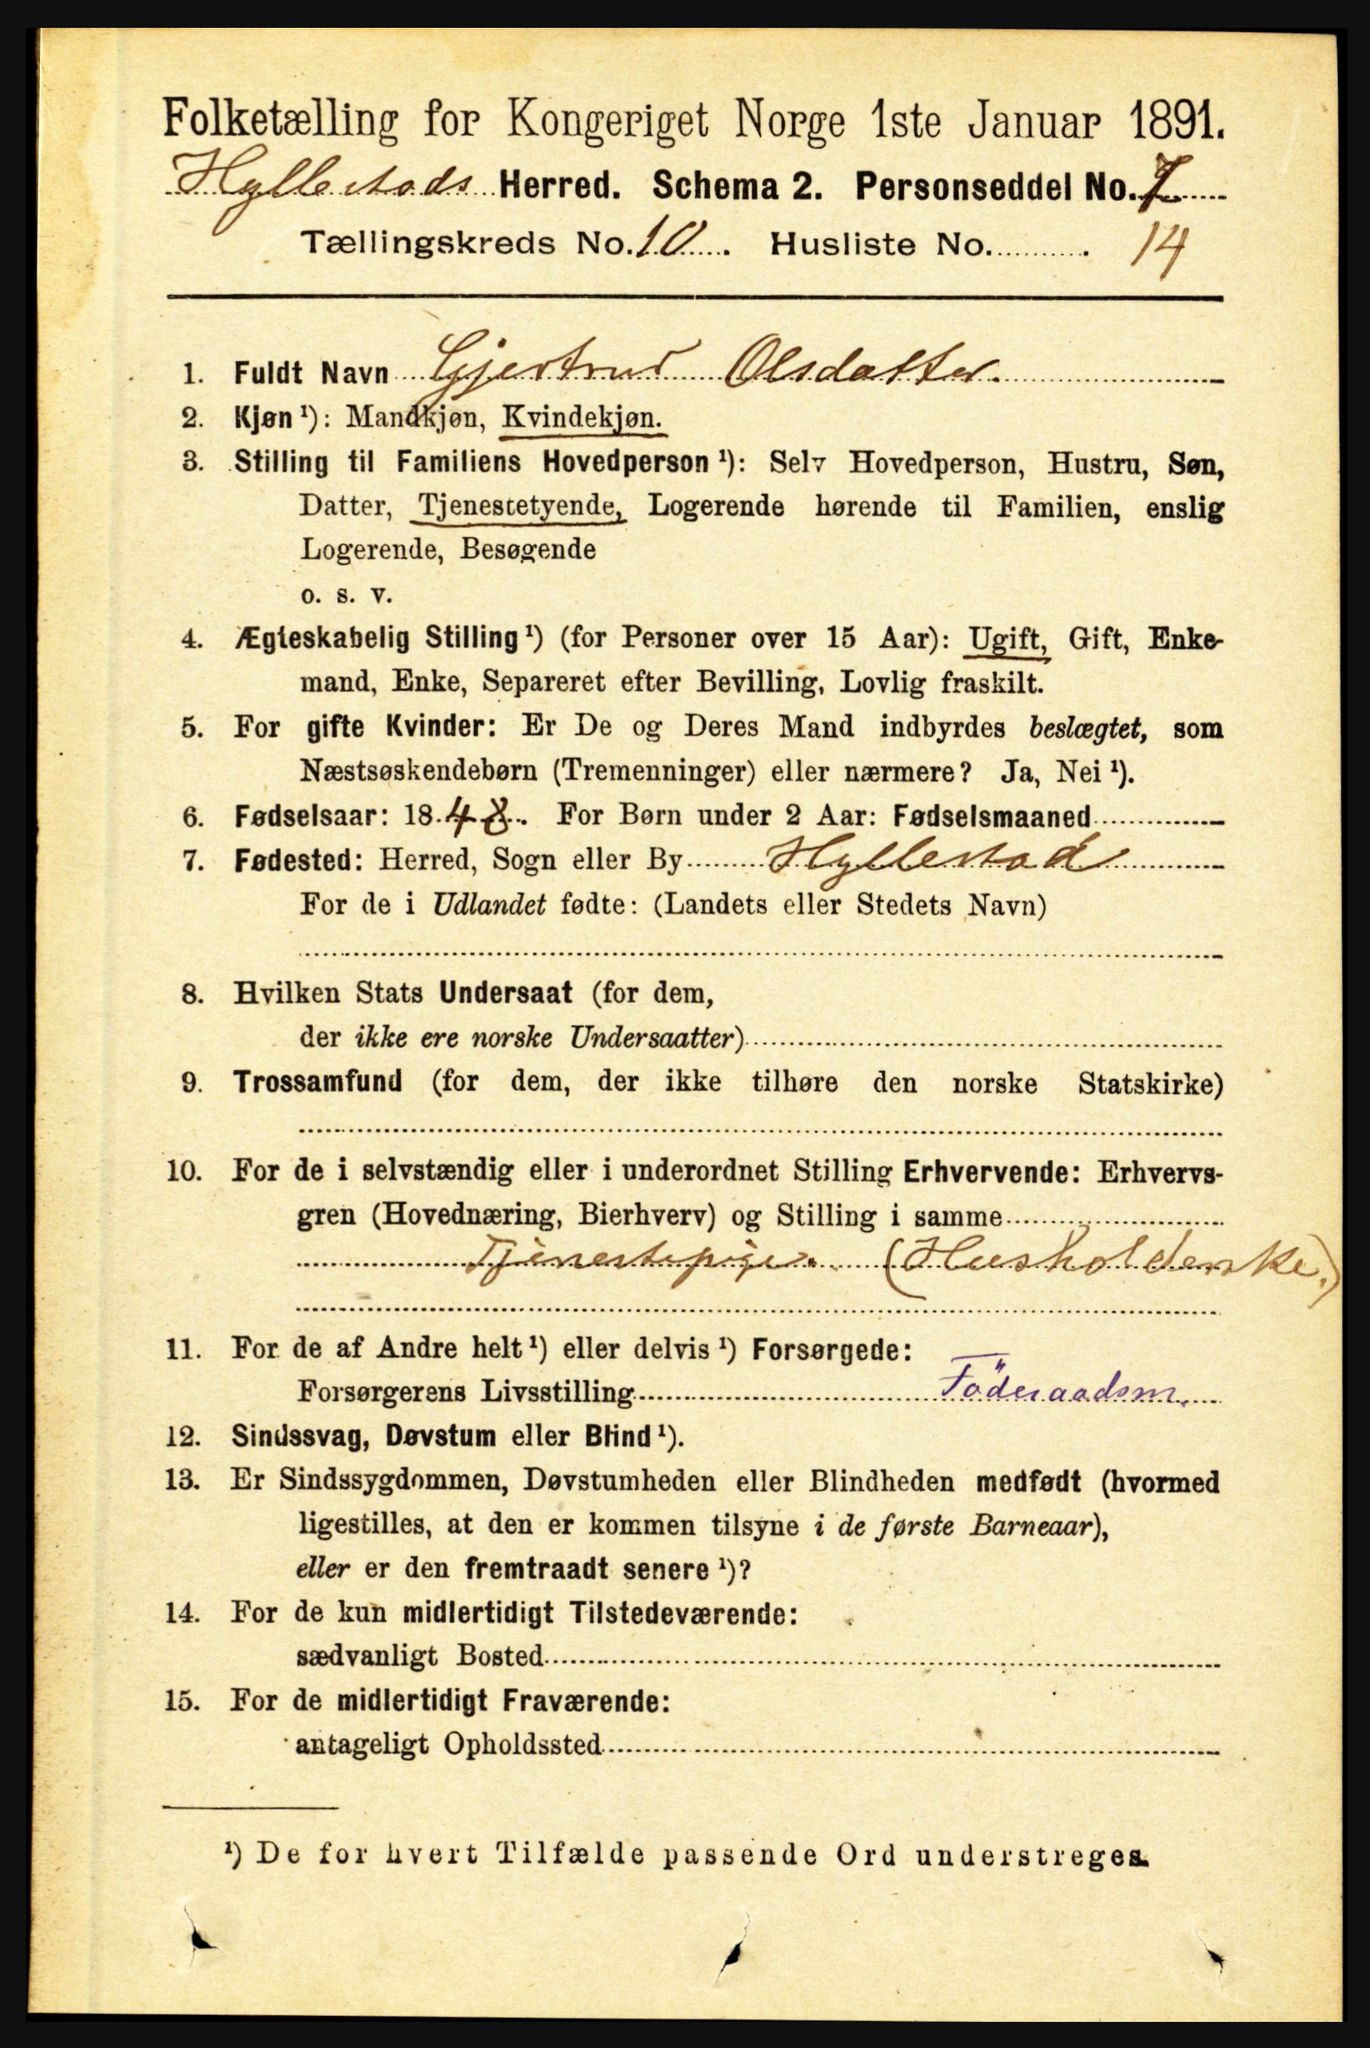 Folketælling for Kongeriget Norge 1ste Januar 1891.
Hyllestads Herred. Schema 2. Personseddel No. 7
Tællingskreds No. 10. Husliste No. 14
1. Fuldt Navn Gjertrud Olsdatter.
2. Kjøn ¹): Mandkjøn, Kvindekjøn.
3. Stilling til Familiens Hovedperson ¹): Selv Hovedperson, Hustru, Søn,
Datter, Tjenestetyende, Logerende hørende til Familien, enslig
Logerende, Besøgende
o. s. v.
4. Ægteskabelig Stilling ¹) (for Personer over 15 Aar): Ugift, Gift, Enke-
mand, Enke, Separeret efter Bevilling, Lovlig fraskilt.
5. For gifte Kvinder: Er De og Deres Mand indbyrdes beslægtet, som
Næstsøskendebørn (Tremenninger) eller nærmere? Ja, Nei ¹).
6. Fødselsaar: 1848. For Børn under 2 Aar: Fødselsmaaned
7. Fødested: Herred, Sogn eller By Hyllestad
For de i Udlandet fødte: (Landets eller Stedets Navn)
8. Hvilken Stats Undersaat (for dem,
der ikke ere norske Undersaatter)
9. Trossamfund (for dem, der ikke tilhøre den norske Statskirke)
10. For de i selvstændig eller i underordnet Stilling Erhvervende: Erhvervs-
gren (Hovednæring, Bierhverv) og Stilling i samme
Tjenestepige. (Husholderske.)
11. For de af Andre helt ¹) eller delvis ¹) Forsørgede:
Forsørgerens Livsstilling Föderaadsm.
12. Sindssvag, Døvstum eller Blind ¹).
13. Er Sindssygdommen, Døvstumheden eller Blindheden medfødt (hvormed
ligestilles, at den er kommen tilsyne i de første Barneaar),
eller er den fremtraadt senere ¹)?
14. For de kun midlertidigt Tilstedeværende:
sædvanligt Bosted
15. For de midlertidigt Fraværende:
antageligt Opholdssted
¹) De for hvert Tilfælde passende Ord understreges.